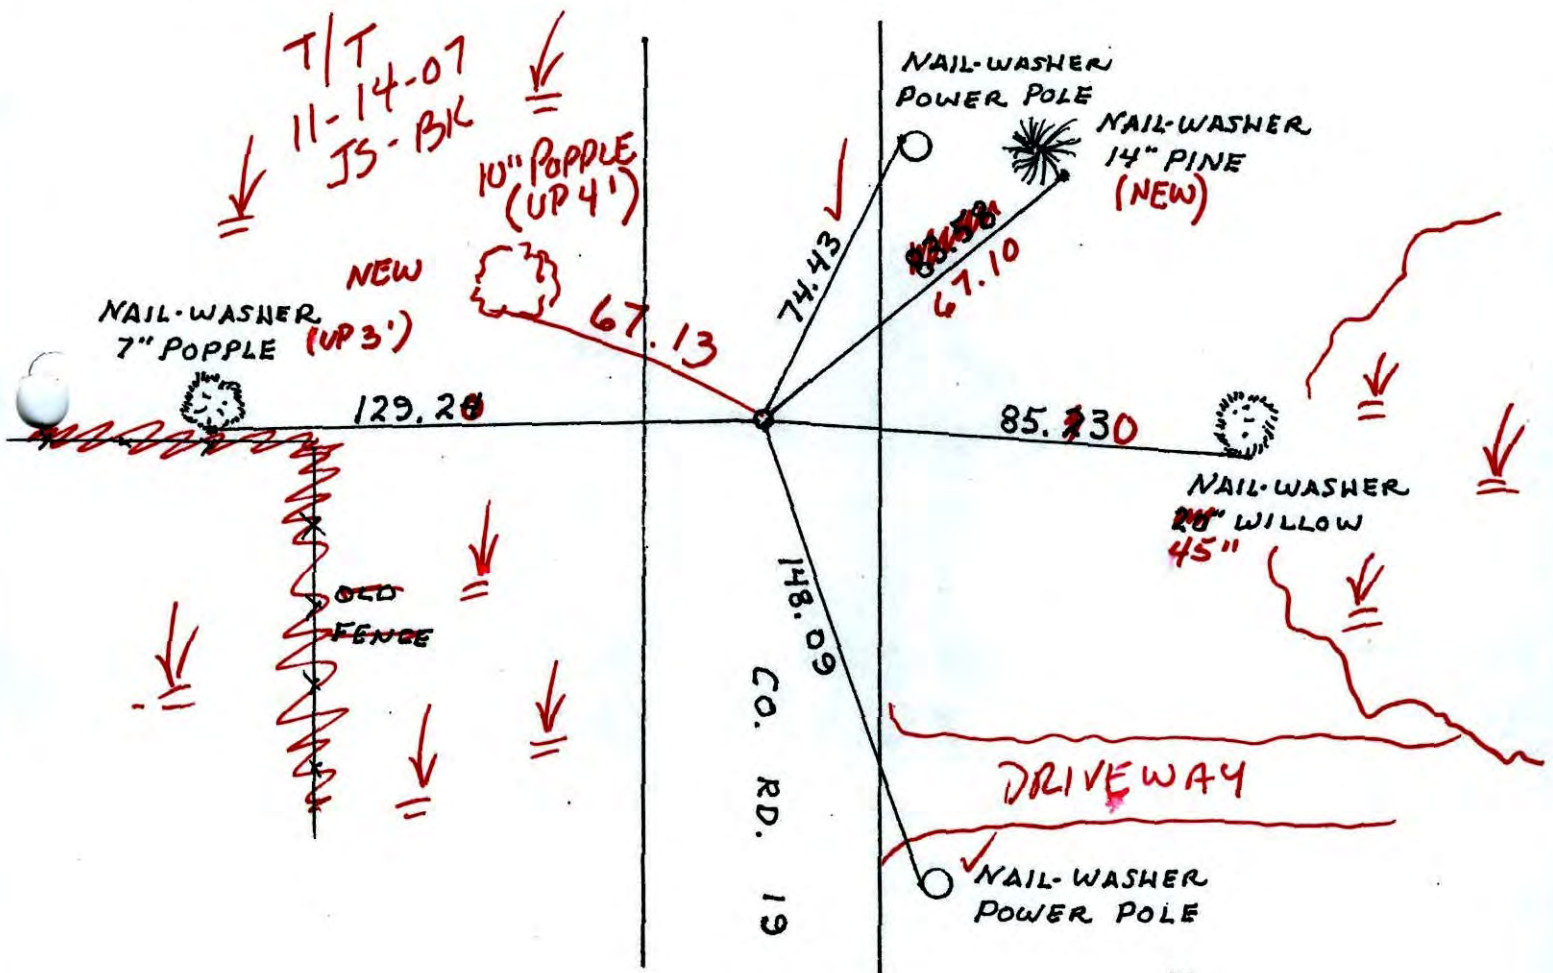 T/T
11-14-07
JS-BK
10" POPPLE
(UP 4')
NEW
NAIL-WASHER
7" POPPLE (UP 3')
67.13
129.20
NAIL-WASHER
POWER POLE
NAIL-WASHER
14" PINE
(NEW)
74.43
83.58
67.10
85.30
NAIL-WASHER
20" WILLOW
45"
OLD
FENCE
148.09
CO. RD. 19
DRIVEWAY
NAIL-WASHER
POWER POLE